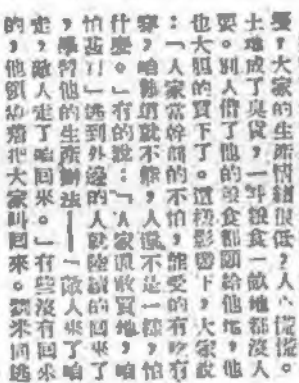 憂，大家的生產情緒很低，人心慌慌
土地成了臭貨，一斗穀食一畝地都沒人
要。別人借了他的穀食都願給他地，他
也大胆的買下了。這樣影响下，大家說
：「人家當幹部的不怕，能受的有吃有
穿，咱熟道就不能，人還不是一樣，怕
什麼。」有的說：「人家還敢買地，咱
怕甚！」逃到外邊的人就陸續的回來了，
，學習他的生產辦法——「敵人來了咱
走，敵人走了咱回來。」有些沒有回來
的，他領幼着把大家叫回來。劉來同逃